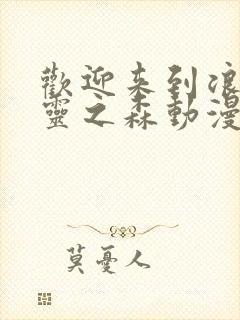 歡迎來到浪
靈之森動漫
莫憂人